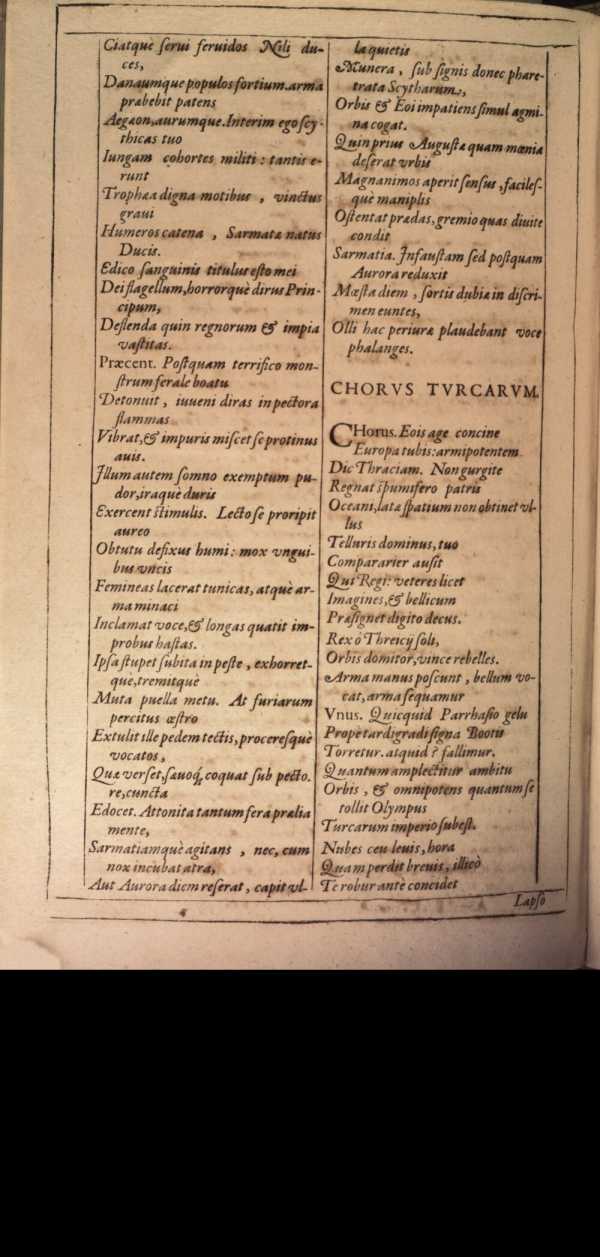 Ciatquè serui feruidos Nili du-
ces,
Danaumque populos fortium. arma
præbebit patens
Aegæon, aurumque. Interim ego scy-
thicas tuo
Iungam cohortes militi: tantis e-
runt
Trophæa digna motibus, vinctus
graui
Humeros catena, Sarmatæ natus
Ducis.
Edico sanguinis titulus esto mei
Dei flagellum, horrorquè dirus Prin-
cipum,
Deflenda quin regnorum & impia
vastitas.
Præcent. Postquam terrifico mon-
strum ferale boatu
Detonuit, iuueni diras in pectora
flammas
Vibrat, & impuris miscet se protinus
auis.
Illum autem somno exemptum pu-
dor, iraquè duris
Exercent stimulis. Lecto se proripit
aureo
Obtutu defixus humi: mox vngui-
bus vncis
Femineas lacerat tunicas, atquè ar-
ma minaci
Inclamat voce, & longas quatit im-
probus hastas.
Ipsa stupet subita in peste, exhorret-
que, tremitquè
Muta puella metu. At furiarum
percitus œstro
Extulit ille pedem tectis, proceresquè
vocatos,
Quæ verset, sæuoq́; coquat sub pecto-
re, cuncta
Edocet. Attonita tantum fera prælia
mente,
Sarmatiamquè agitans, nec, cum
nox incubat atra,
Aut Aurora diem reserat, capit vl-
la quietis
Munera, sub signis donec phare-
trata Scytharum,
Orbis & Eoi impatiens simul agmi-
na cogat.
Quin prius Augustæ quam mœnia
deserat vrbis
Magnanimos aperit sensus, faciles-
què maniplis
Ostentat prædas, gremio quas diuite
condit
Sarmatia. Infaustam sed postquam
Aurora reduxit
Mœsta diem, sortis dubiæ in discri-
men euntes,
Olli hac periuræ plaudebant voce
phalanges.
CHORVS TVRCARVM.
CHorus. Eois age concine
Europa tubis: armipotentem
Dic Thraciam. Non gurgite
Regnat spumifero patris
Oceani, latæ spatium non obtinet vl-
lus
Telluris dominus, tuo
Compararier ausit
Qui Regi: veteres licet
Imagines, & bellicum
Præsignet digito decus.
Rex ò Threicij soli,
Orbis domitor, vince rebelles.
Arma manus poscunt, bellum vo-
cat, arma sequamur
Vnus. Quicquid Parrhasio gelu
Propè tardigradi signa Bootis
Torretur. at quid? fallimur.
Quantum amplectitur ambitu
Orbis, & omnipotens quantum se
tollit Olympus
Turcarum imperio subest.
Nubes ceu leuis, hora
Quam perdit breuis, illicò
Te robur antè concidet
Lapso